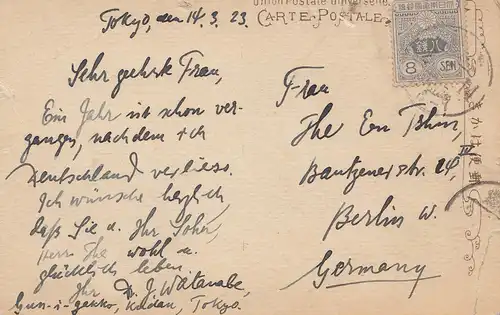 Tokyo, den 14. 3. 23.
Union Postale Universelle.
CARTE-POSTALE.
8 SEN
Sehr geehrte Frau,
Ein Jahr ist schon ver-
gangen, nachdem ich
Deutschland verliess.
Ich wünsche herzlich,
daß Sie u. Ihr Sohn,
Herr Ihe wohl u.
glücklich leben.
Ihr Dr. J. Watanabe,
Gun-i-gakko, Tokyo.
Frau
Ihe En Tshin,
Bautzenerstr. 24 IV
Berlin W.
Germany